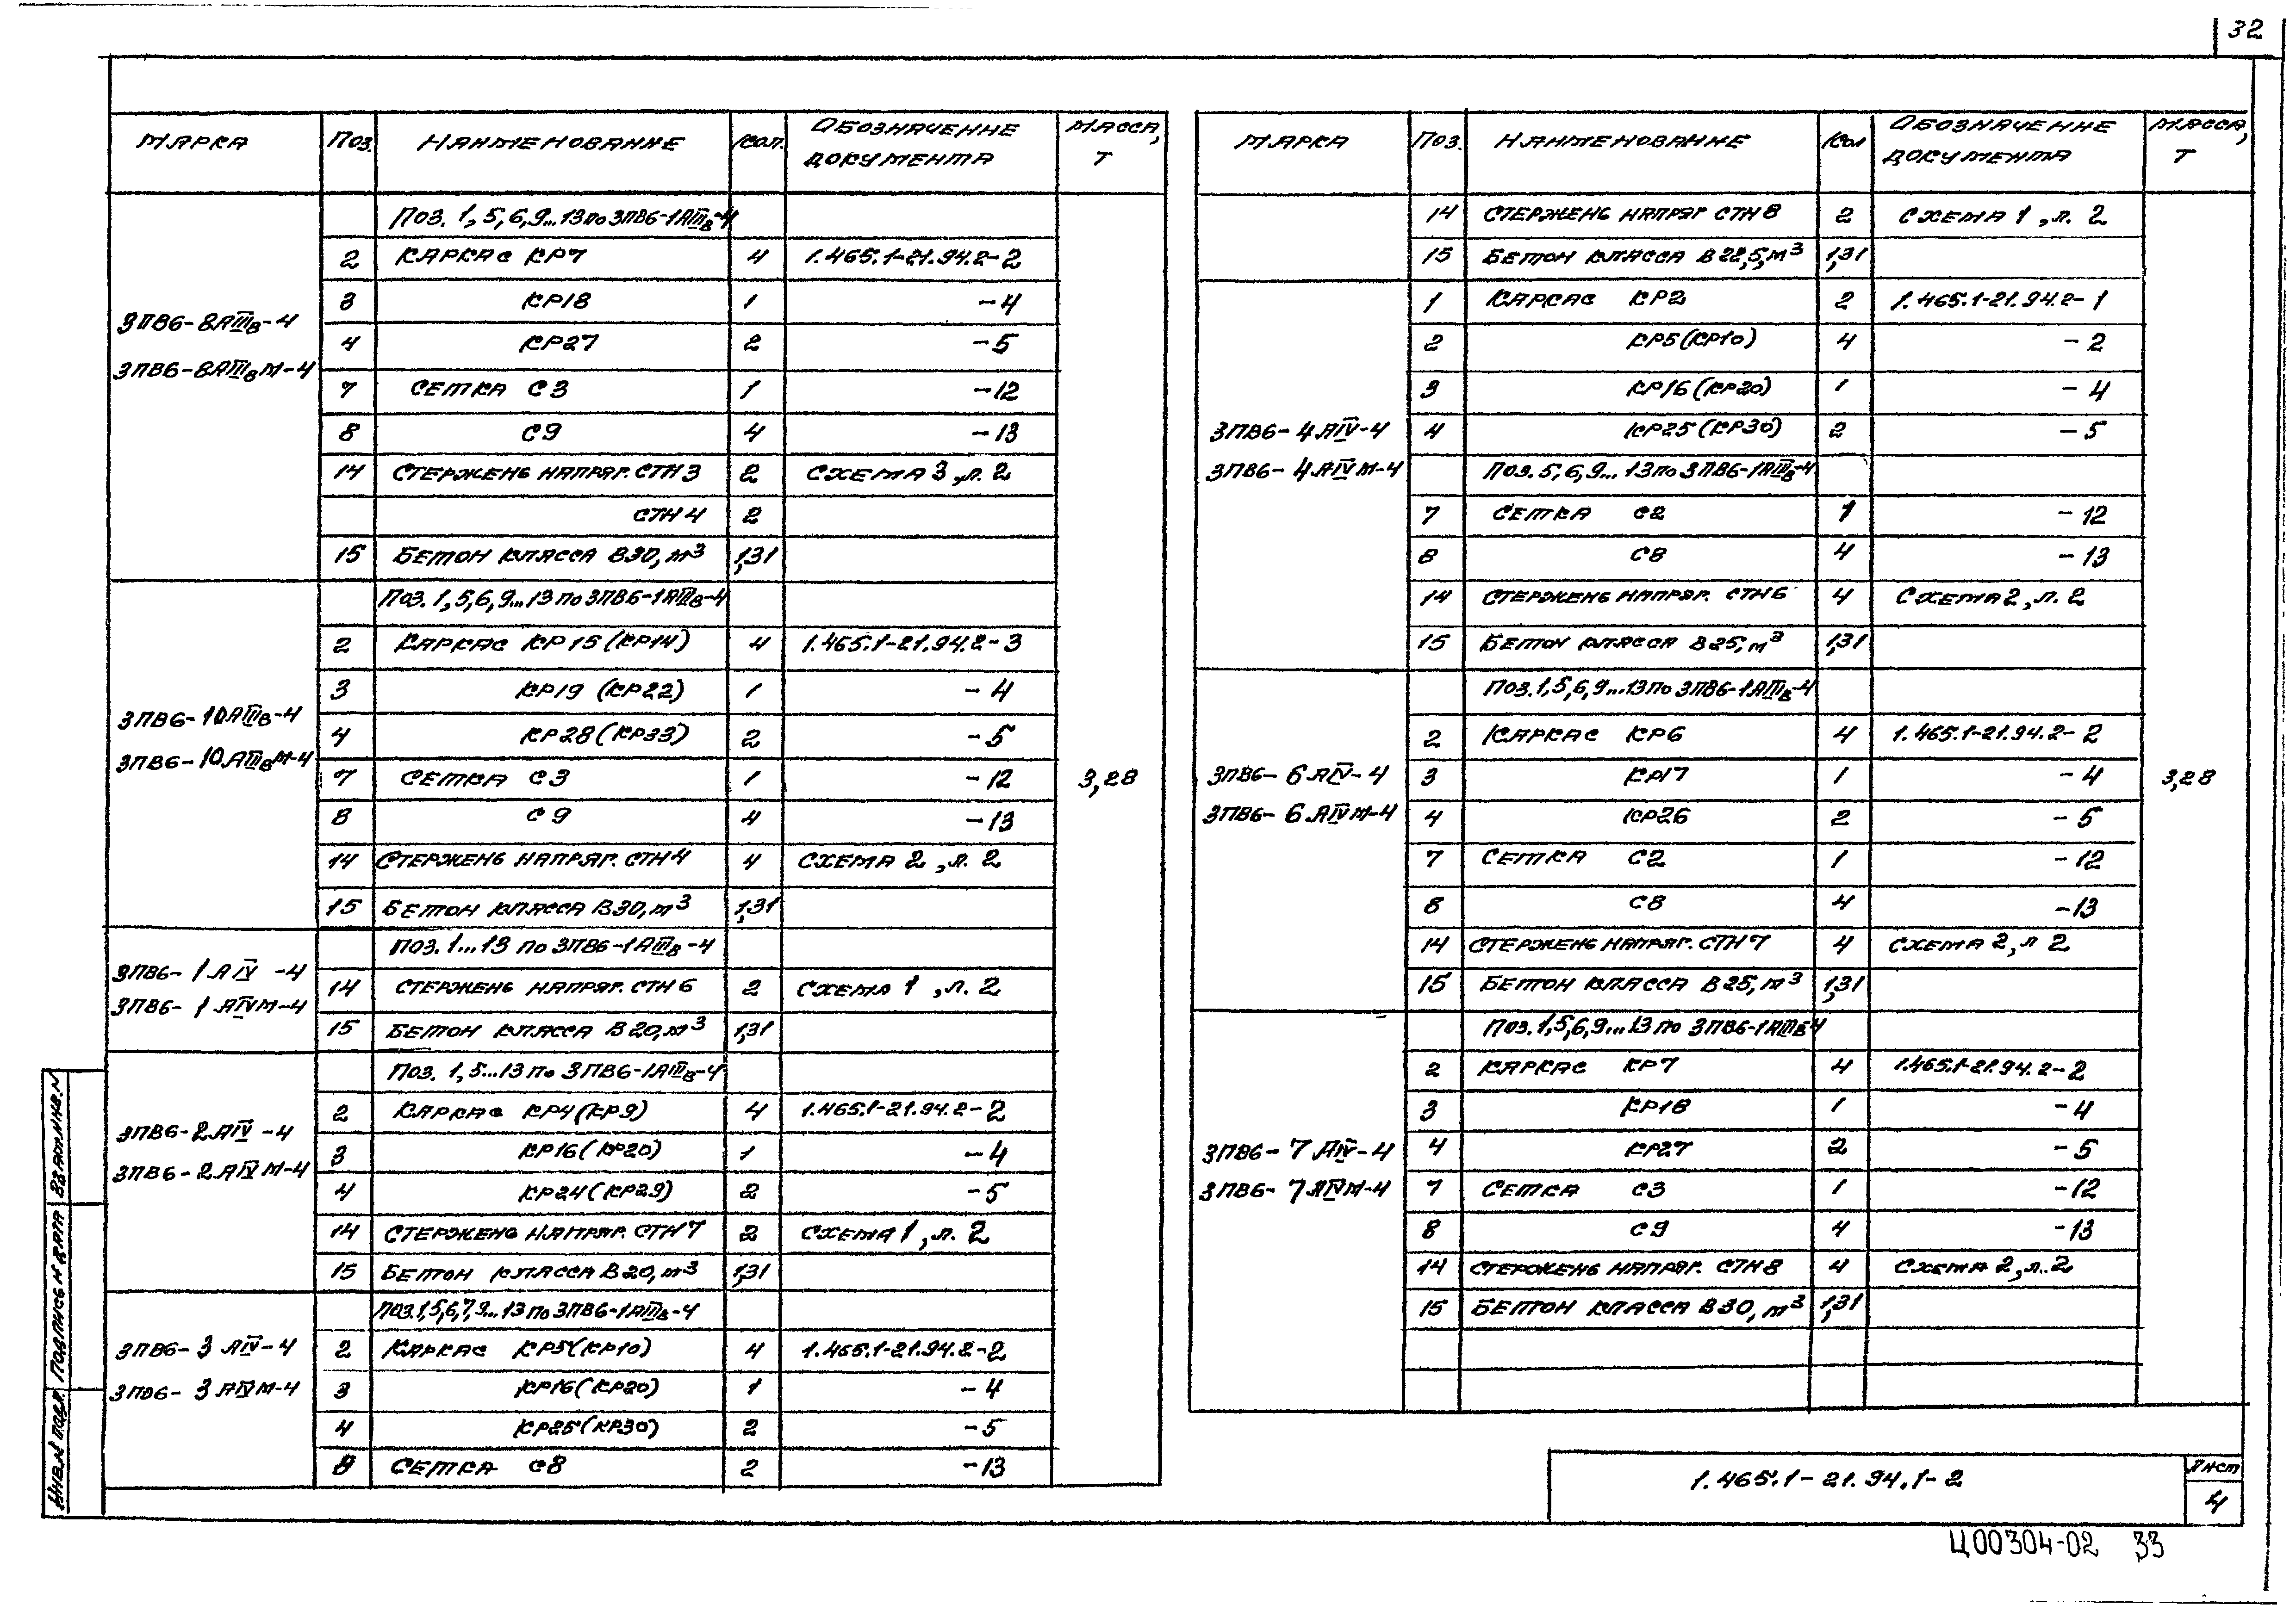 32
МАРКА Поз. НАИМЕНОВАНИЕ Кол. ОБОЗНАЧЕНИЕ ДОКУМЕНТА МАССА, Т
3ПВ6-8АIIIв-4
3ПВ6-8АIIIвМ-4
Поз. 1, 5, 6, 9...13 по 3ПВ6-1АIIIв-4
2 КАРКАС КР7 4 1.465.1-21.94.2-2
3 КР18 1 -4
4 КР27 2 -5
7 СЕТКА С3 1 -12
8 С9 4 -13
14 СТЕРЖЕНЬ НАПРЯГ. СТН3 2 СХЕМА 3, л. 2
СТН4 2
15 БЕТОН КЛАССА В30, м³ 1,31
3ПВ6-10АIIIв-4
3ПВ6-10АIIIвМ-4
Поз. 1, 5, 6, 9...13 по 3ПВ6-1АIIIв-4
2 КАРКАС КР15 (КР14) 4 1.465.1-21.94.2-3
3 КР19 (КР22) 1 -4
4 КР28 (КР33) 2 -5
7 СЕТКА С3 1 -12
3,28
8 С9 4 -13
14 СТЕРЖЕНЬ НАПРЯГ. СТН4 4 СХЕМА 2, л. 2
15 БЕТОН КЛАССА В30, м³ 1,31
3ПВ6-1АIV-4
3ПВ6-1АIVМ-4
Поз. 1...13 по 3ПВ6-1АIIIв-4
14 СТЕРЖЕНЬ НАПРЯГ. СТН6 2 СХЕМА 1, л. 2
15 БЕТОН КЛАССА В20, м³ 1,31
3ПВ6-2АIV-4
3ПВ6-2АIVМ-4
Поз. 1, 5...13 по 3ПВ6-1АIIIв-4
2 КАРКАС КР4 (КР9) 4 1.465.1-21.94.2-2
3 КР16 (КР20) 1 -4
4 КР24 (КР29) 2 -5
14 СТЕРЖЕНЬ НАПРЯГ. СТН7 2 СХЕМА 1, л. 2
15 БЕТОН КЛАССА В20, м³ 1,31
3ПВ6-3АIV-4
3ПВ6-3АIVМ-4
Поз. 1, 5, 6, 7, 9...13 по 3ПВ6-1АIIIв-4
2 КАРКАС КР5 (КР10) 4 1.465.1-21.94.2-2
3 КР16 (КР20) 1 -4
4 КР25 (КР30) 2 -5
8 СЕТКА С8 2 -13
МАРКА Поз. НАИМЕНОВАНИЕ Кол ОБОЗНАЧЕНИЕ ДОКУМЕНТА МАССА, Т
14 СТЕРЖЕНЬ НАПРЯГ СТН8 2 СХЕМА 1, л. 2
15 БЕТОН КЛАССА В22,5, м³ 1,31
3ПВ6-4АIV-4
3ПВ6-4АIVМ-4
1 КАРКАС КР2 2 1.465.1-21.94.2-1
2 КР5 (КР10) 4 -2
3 КР16 (КР20) 1 -4
4 КР25 (КР30) 2 -5
Поз. 5, 6, 9...13 по 3ПВ6-1АIIIв-4
7 СЕТКА С2 1 -12
8 С8 4 -13
14 СТЕРЖЕНЬ НАПРЯГ. СТН6 4 СХЕМА 2, л. 2
15 БЕТОН КЛАССА В25, м³ 1,31
3ПВ6-6АIV-4
3ПВ6-6АIVМ-4
Поз. 1, 5, 6, 9...13 по 3ПВ6-1АIIIв-4
2 КАРКАС КР6 4 1.465.1-21.94.2-2
3 КР17 1 -4
3,28
4 КР26 2 -5
7 СЕТКА С2 1 -12
8 С8 4 -13
14 СТЕРЖЕНЬ НАПРЯГ. СТН7 4 СХЕМА 2, л 2
15 БЕТОН КЛАССА В25, м³ 1,31
3ПВ6-7АIV-4
3ПВ6-7АIVМ-4
Поз. 1, 5, 6, 9...13 по 3ПВ6-1АIIIв-4
2 КАРКАС КР7 4 1.465.1-21.94.2-2
3 КР18 1 -4
4 КР27 2 -5
7 СЕТКА С3 1 -12
8 С9 4 -13
14 СТЕРЖЕНЬ НАПРЯГ. СТН8 4 СХЕМА 2, л. 2
15 БЕТОН КЛАССА В30, м³ 1,31
Инв.№ подл. Подпись и дата Взам.инв.№
1.465.1-21.94.1-2
Лист
4
Ц00304-02 33